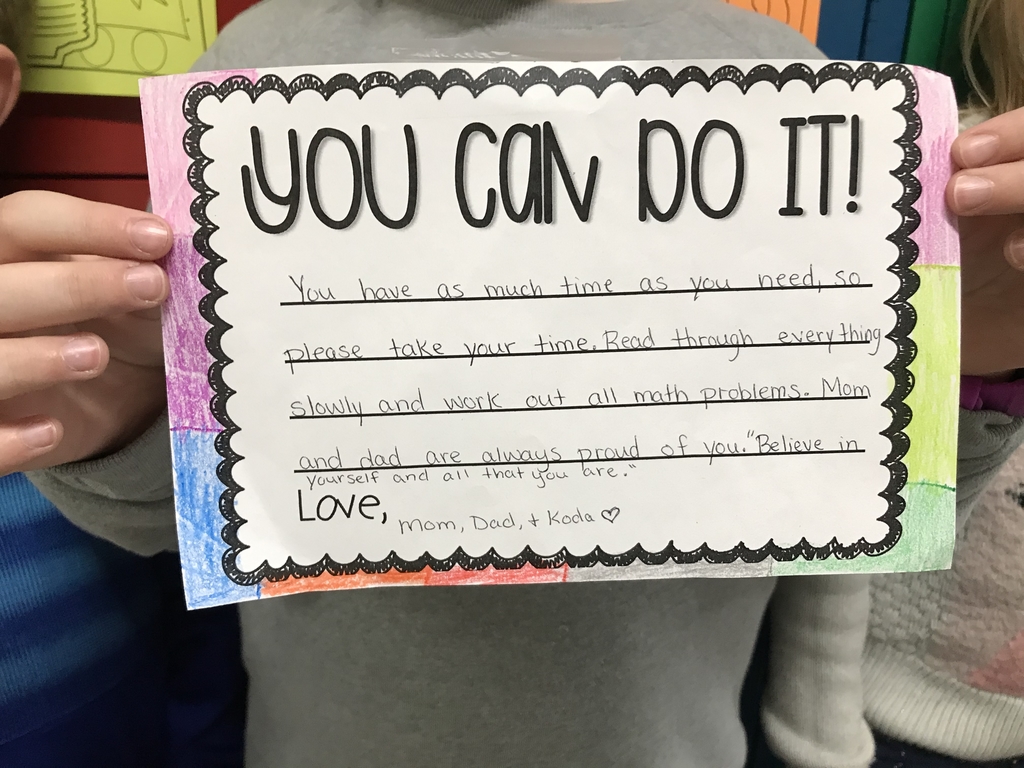 YOU CAN DO IT!
You have as much time as you need, so
please take your time. Read through everything
slowly and work out all math problems. Mom
and dad are always proud of you. "Believe in
yourself and all that you are."
Love, Mom, Dad, + Koda ♡